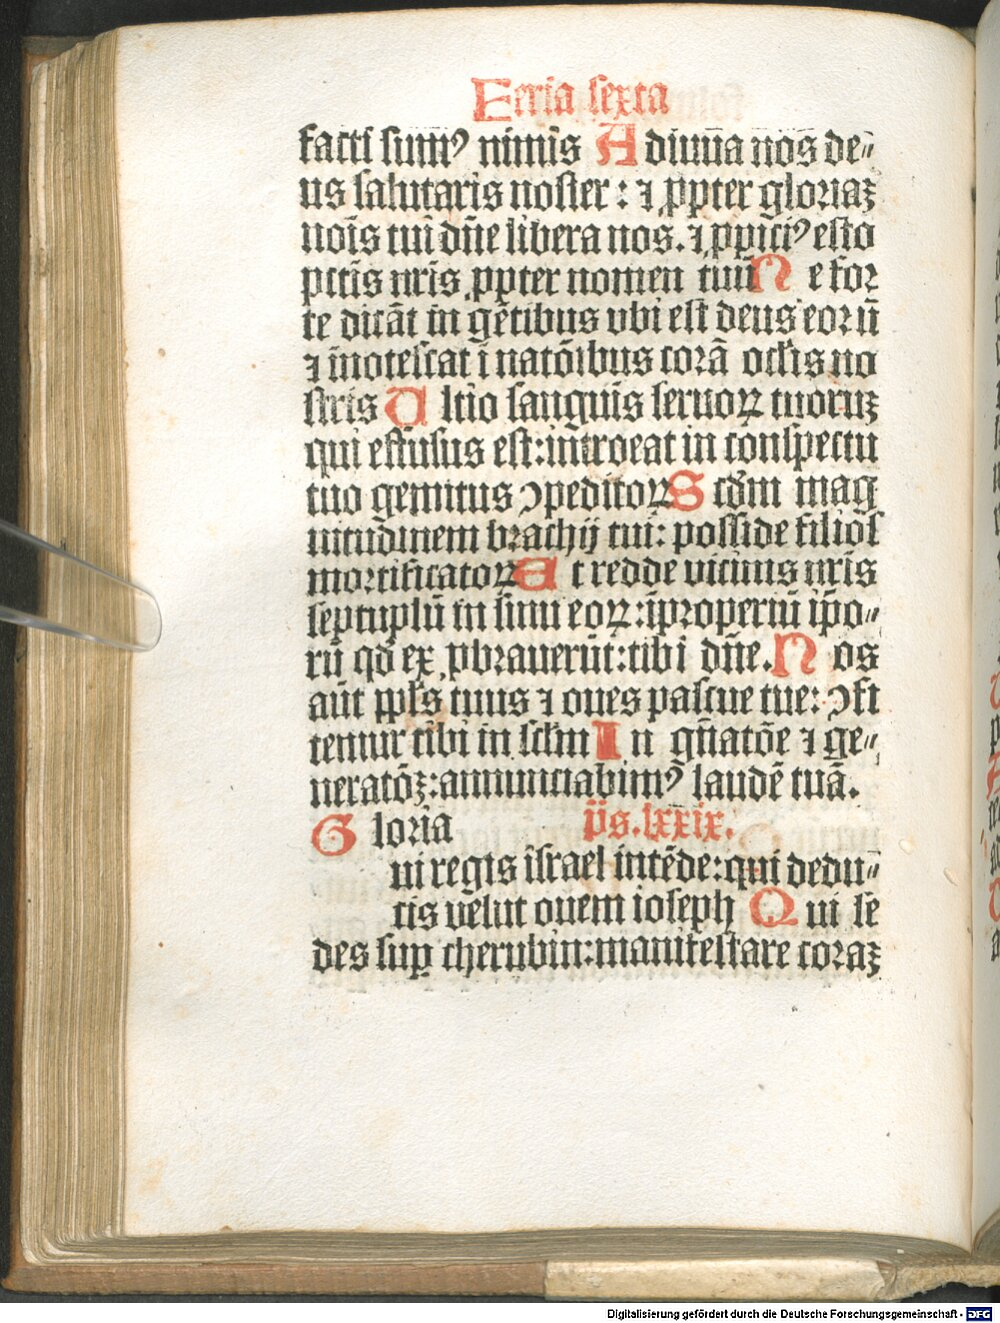 Feria sexta
facti sumꝰ nimis Adiuua nos de⸗
us salutaris noster: ⁊ ꝓpter gloriaꝫ
noīs tui dn̄e libera nos. ⁊ ꝓpiciꝰ esto
pctīs nr̄is ꝓpter nomen tuū Ne for
te dicāt in gētibus vbi est deus eorū
⁊ īnotescat ī natōibus corā oclīs no
stris Vltio sanguīs seruoꝝ tuoruꝫ
qui effusus est: introeat in conspectu
tuo gemitus ↄpeditoꝝ Scd̄m mag
nitudinem brachij tui: posside filios
mortificatoꝝ Et redde vicinis nr̄is
septuplū in sinu eoꝝ: īproperiū ip̄o⸗
rū qd̄ exꝓbrauerūt: tibi dn̄e. Nos
aūt ppl̄s tuus ⁊ oues pascue tue: ↄfi
temur tibi in sclm̄ In gn̄atōe ⁊ ge⸗
neratōꝫ: annunciabimꝰ laudē tuā.
Gloria ps̄. lxxix.
ui regis israel intēde: qui dedu⸗
cis velut ouem ioseph Qui se
des suꝑ cherubin: manifestare coraꝫ
Digitalisierung gefördert durch die Deutsche Forschungsgemeinschaft - DFG